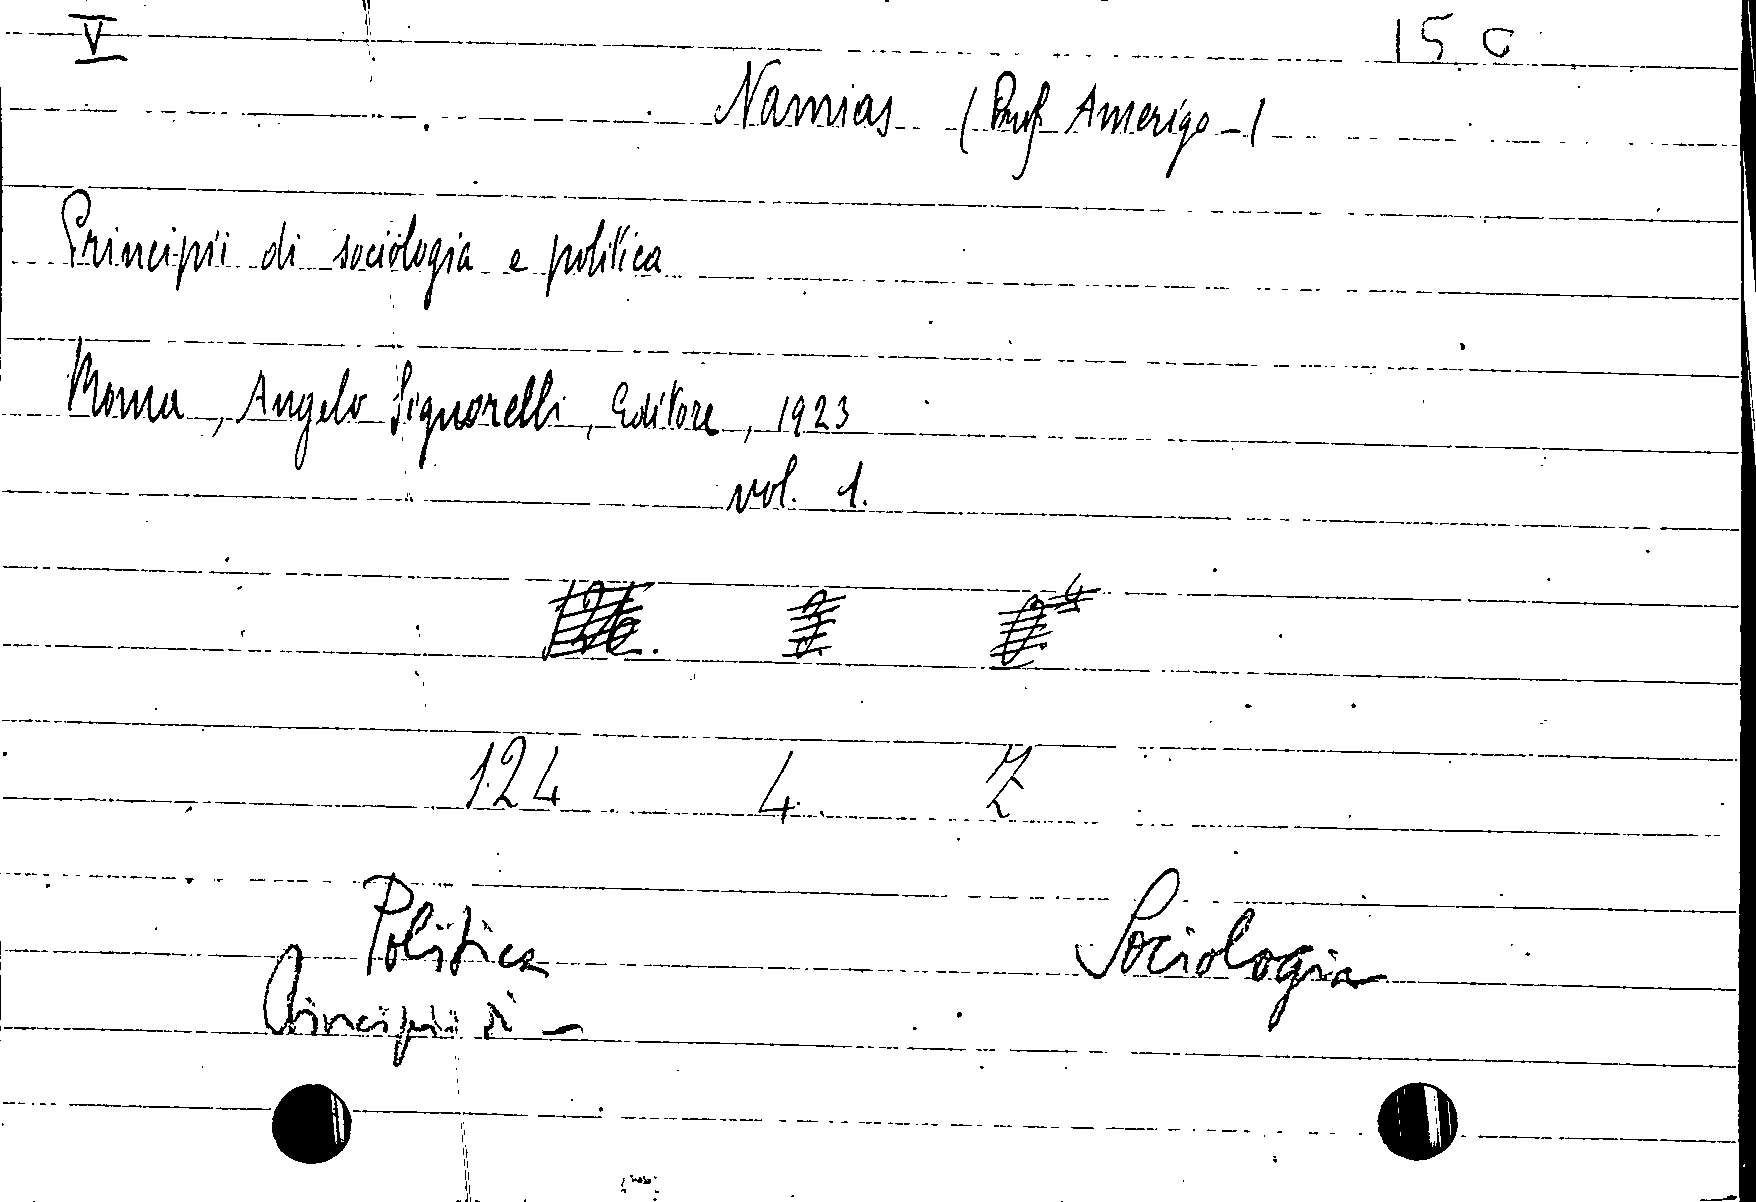 V 15 c
Namias (Prof Amerigo -)
Principii di sociologia e politica
Roma, Angelo Signorelli, Editore, 1923
vol. 1.
124 4 Z
Politica Sociologia
Principii di -